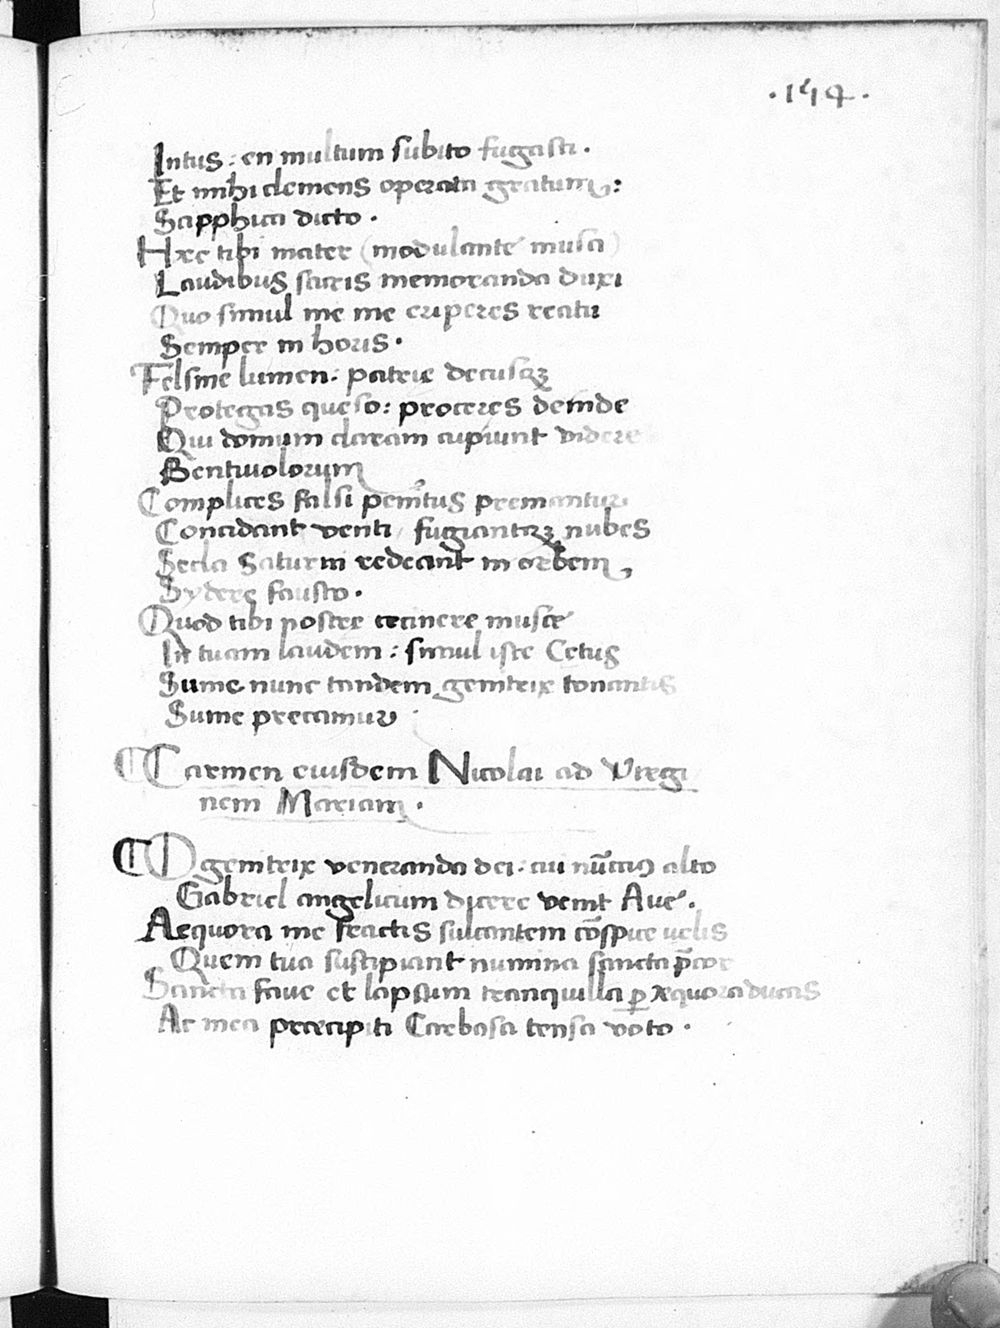 .154.
Intus: en multum subito fugasti.
Et mihi clemens operata gratum:
Sapphica dicto.
Hæc tibi mater (modulante musa)
Laudibus sacris memoranda duxi
Quo simul me me eriperes reatu
Semper in horis.
Felsinę lumen: patrię decusqꝫ
Protegas quęso: proceres deinde
Qui domum claram cupiunt videre
Bentivolorum
Complices falsi penitus premantur
Concidant venti / fugiantqꝫ nubes
Secla Saturni redeant in orbem,
Syderę fausto.
Quod tibi nostrę cecinere musæ
In tuam laudem: simul iste Cętus
Sume nunc tandem genitrix tonantis
Sume precamur
Carmen eiusdem Nicolai ad Virgi
nem Mariam.
O genitrix veneranda dei: cui nũcius alto
Gabriel angelicum dicere venit Aue.
Aequora me fractis sulcantem cõspice uelis
Quem tua suscipiant numina sancta p̃cor
Sancta faue et lapsum tranquilla ꝑ æquora ducas
Ac mea præcipiti Carbasa tensa voto.